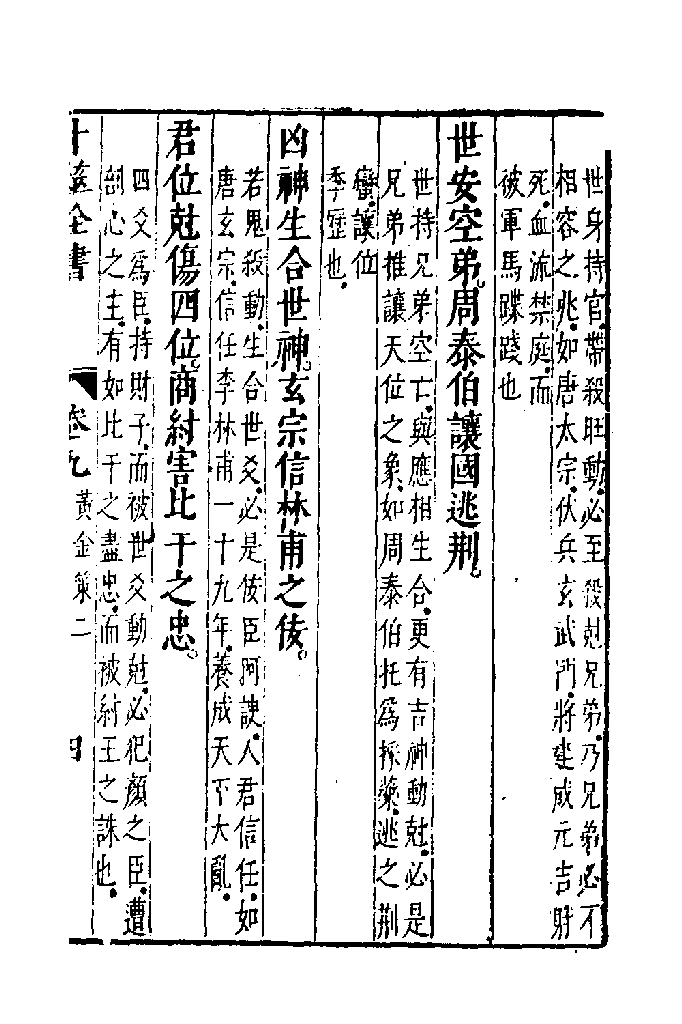 世身持官帶殺旺動必至殺尅兄弟乃兄弟必不
相容之兆如唐太宗伏兵玄武門將建成元吉射
死血流禁庭而
被軍馬蹀踐也
世安空弟周泰伯讓國逃荆
世持兄弟空亡與應相生合更有吉神動尅必是
兄弟推讓天位之象如周泰伯托為採藥逃之荆
蠻讓位
季歷也
凶神生合世神玄宗信林甫之佞
若鬼殺動生合世爻必是佞臣阿諛人君信任如
唐玄宗信任李林甫一十九年養成天下大亂
君位尅傷四位商紂害比干之忠
四爻為臣持財子而被世爻動尅必犯顏之臣遭
剖心之主有如比干之盡忠而被紂王之誅也
卜筮全書 卷九 黃金策二 四